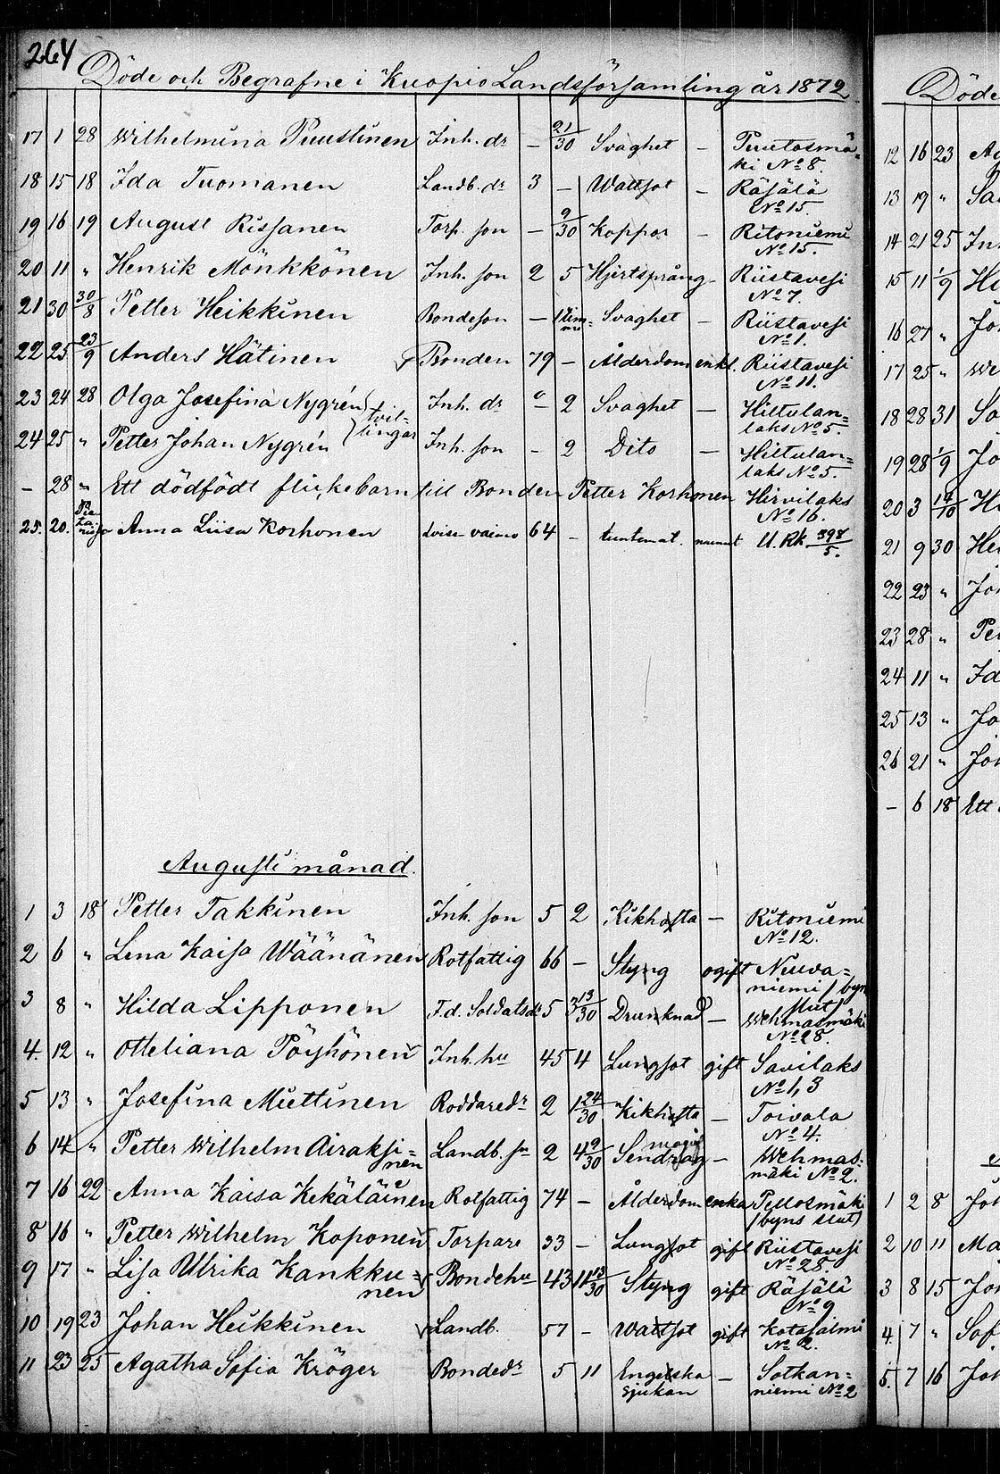 264
Döde och Begrafne i Kuopio Landsförsamling år 1872
17 1 28 Wilhelmina Puustinen Inh. dr – 21/30 Svaghet – Puutosmä-
ki No 8.
18 15 18 Ida Tuomanen Landb. dr 3 – Wattsot – Räsälä
No 15.
19 16 19 August Rissanen Torp. son – 9/30 Koppor – Ritoniemi
No 15.
20 11 " Henrik Mönkkönen Inh. son 2 5 Hjertsprång – Riistavesi
No 7.
21 30 30/8 Petter Heikkinen Bondeson – Svaghet – Riistavesi
No 1.
22 25 23/9 Anders Hätinen Bonden 79 – Ålderdom enkl. Riistavesi
No 11.
23 24 28 Olga Josefina Nygrén Inh. dr – 2 Svaghet – Hiltulan=
laks No 5.
tvil-
lingar
24 25 " Petter Johan Nygrén Inh. son – 2 Dito – Hiltulan=
laks No 5.
– 28 " Ett dödfödt flickebarn till Bonden Petter Korhonen Hirvilaks
No 16.
25. 20. Anna Liisa Korhonen Loisen vaimo 64 – tuntemat. U. Rk 398/5.
Augusti månad.
1 3 18 Petter Takkinen Inh. son 5 2 Kikhosta – Ritoniemi
No 12.
2 6 " Lena Kaisa Wäänänen Rotfattig 66 – Styng ogift Neuva=
niemi / byns
slut /
3 8 " Hilda Lipponen F.d. Soldatsdr 5 3 13/30 Drunknad – Wehmasmäki
No 28.
4. 12 " Otteliana Pöyhönen Inh. hu 45 4 Lungsot gift Savilaks
No 1, 3
5 13 " Josefina Miettinen Roddaredr 2 1 24/30 Kikhosta – Toivala
No 4.
6 14 " Petter Wilhelm Airaksi=
nen Landb. sn 2 4 9/30 – Wehmas-
mäki No 2.
7 16 22 Anna Kaisa Kekäläinen Rotfattig 74 – Ålderdom enka Pellosmäki
/byns slut/
8 16 " Petter Wilhelm Koponen Torpare 33 – Lungsot gift Riistavesi
No 25.
9 17 " Lisa Ulrika Kankku=
nen Bondehu 43 11 13/30 Styng gift Räsälä
No 9
10 19 23 Johan Heikkinen Landb. 57 – Wattsot gift Kotasalmi
No 2.
11 23 25 Agatha Sofia Kröger Bondedr 5 11 Engelska
sjukan – Sotkan=
niemi No 2
Döde
12 16 23
13 19 "
14 21 25
15 11 1/9
16 27 "
17 25 "
18 28 31
19 28 1/9
20 3 14/10
21 9 30
22 23 "
23 28 "
24 11 "
25 13 "
26 21 "
– 6 18 Ett
1 2 8
2 10 11
3 8 15
4. 7 "
5. 7 16